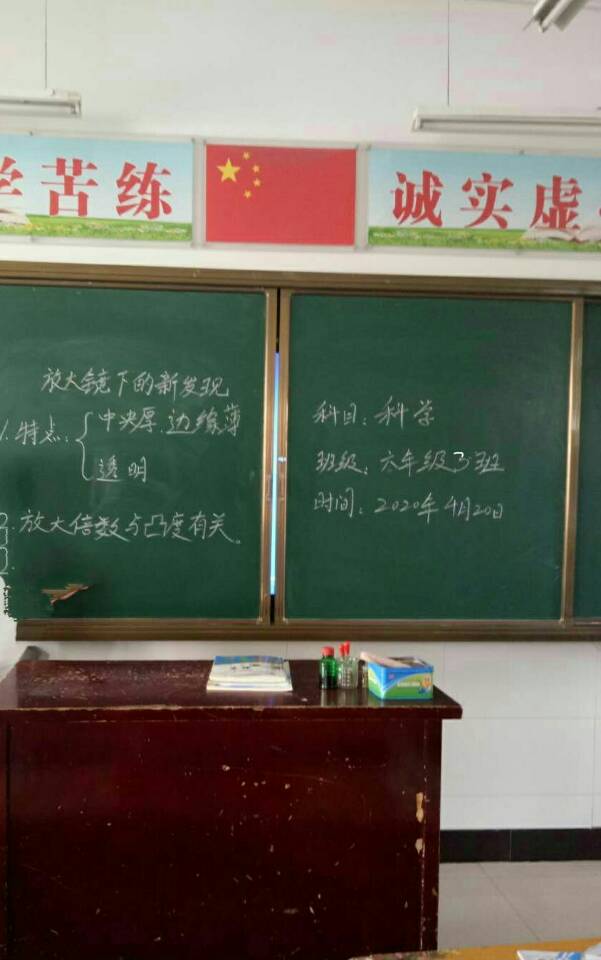 苦练
诚实虚
放大镜下的新发现
1.特点:
中央厚.边缘薄
透明
2.放大倍数与凸度有关。
科目:科学
班级:六年级3班
时间:2020年4月20日